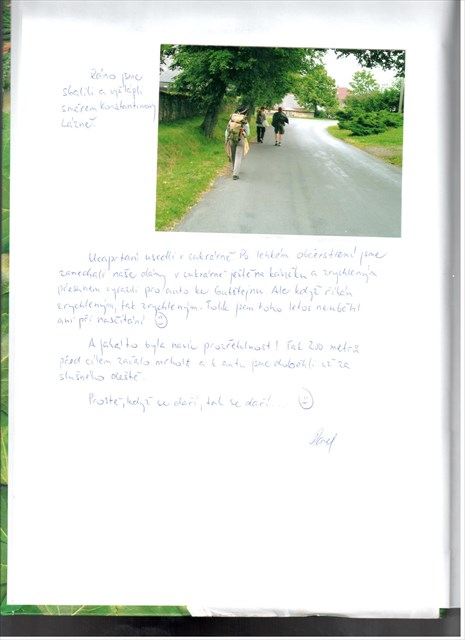 Ráno jsme
sbalili a vyšlapli
směrem Konstantinovy
Lázně.
Ucaprtaní usedli v cukrárně. Po lehkém občerstvení jsme
zanechali naše dámy v cukrárně ještě na kafíčku a zrychleným
přesunem vyrazili pro auto ke Gutštejnu. Ale když říkám
zrychleným, tak zrychleným. Tolik jsem toho letos neuběhl
ani při
A jaká to byla navíc prozřetelnost! Tak 200 metrů
před cílem začalo mrholit a k autu jsme doběhli už za
slušného deště.
Prostě, když se daří, tak se daří...